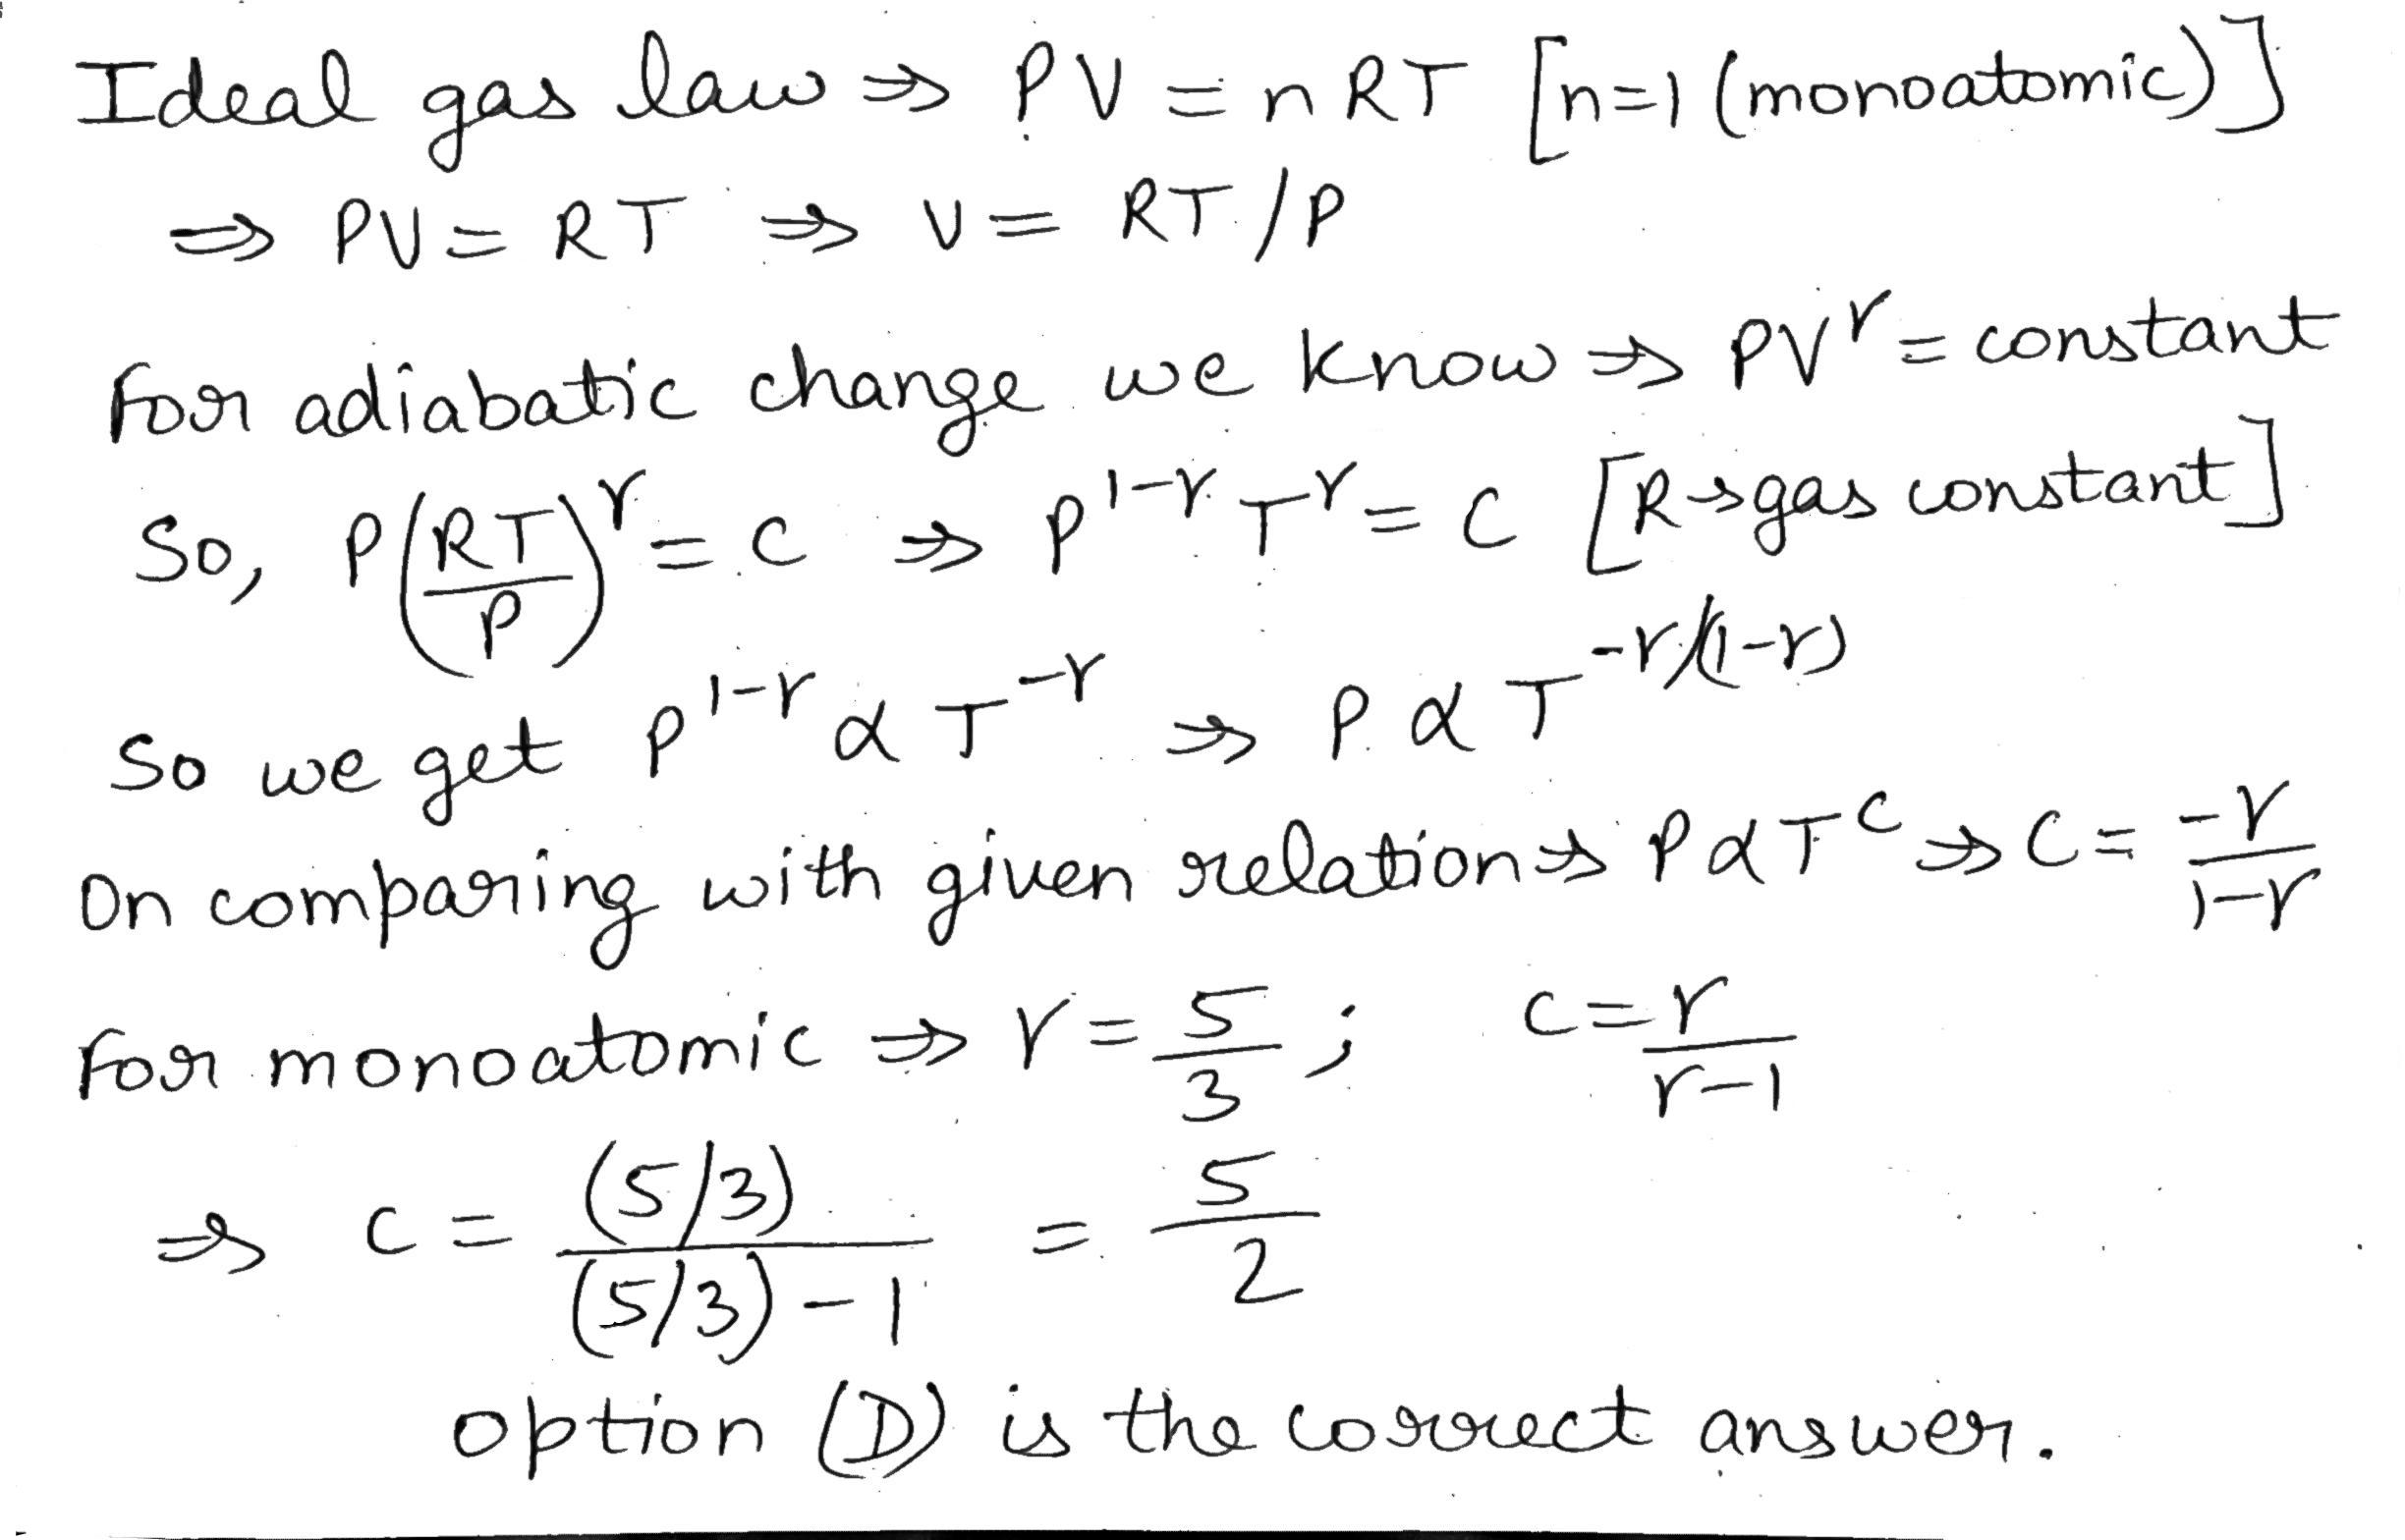 Ideal gas law ⇒ PV = nRT [n=1 (monoatomic)]
⇒ PV = RT ⇒ V = RT/P
For adiabatic change we know ⇒ PV^γ = constant
So, P(RT/P)^γ = C ⇒ P^(1-γ) T^γ = C [R → gas constant]
So we get P^(1-γ) α T^(-γ) ⇒ P α T^(-γ/(1-γ))
On comparing with given relation ⇒ P α T^C ⇒ C = -γ/(1-γ)
For monoatomic ⇒ γ = 5/3 ; C = γ/(γ-1)
⇒ C = (5/3)/((5/3)-1) = 5/2
option (D) is the correct answer.